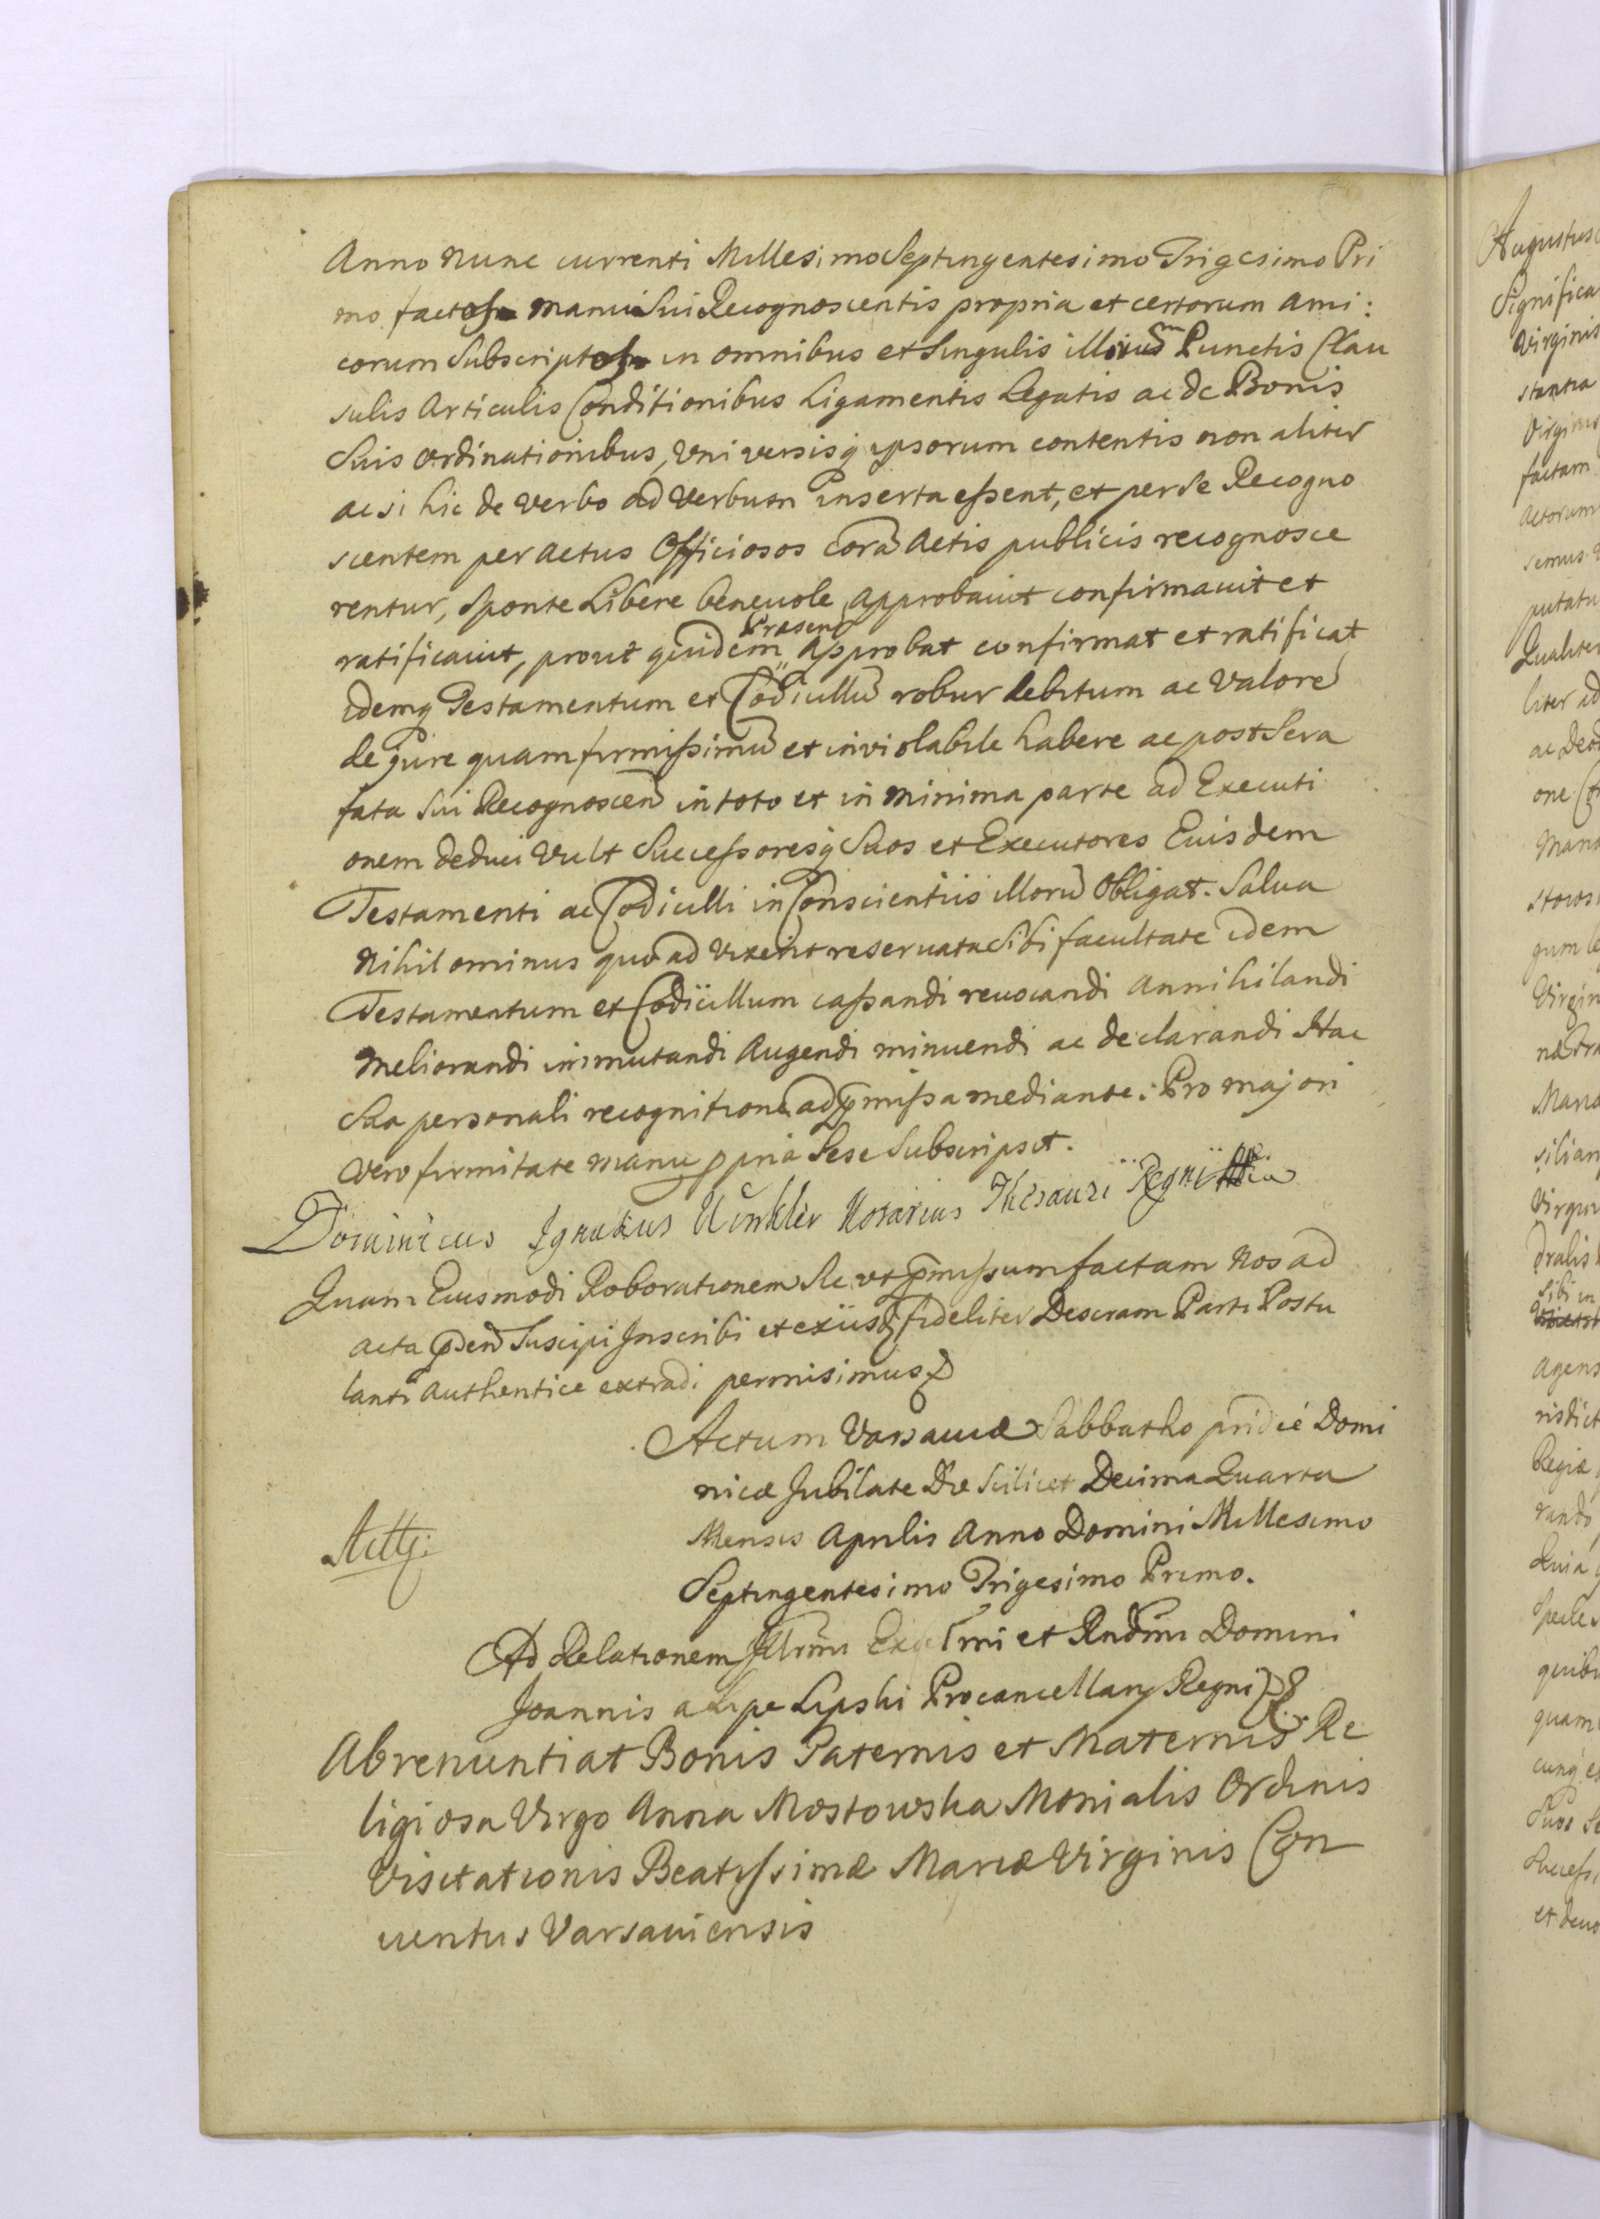 Anno nunc currenti Millesimo Septingentesimo Trigesimo Pri
mo facto manu Sui Recognoscentis propria et certorum ami:
corum Subscripto in omnibus et Singulis Punctis Clau
sulis Articulis Conditionibus Ligamentis Legatis ac de Bonis
Suis ordinationibus, Universisq ipsorum contentis non aliter
ac si hic de verbo ad verbum inserta essent, et per se Recogno
scentem per actus Officiosos corā Actis publicis recognosce
rentur, Sponte Libere beneuole approbauit confirmauit et
ratificauit, prout quidem Præsenꝫ approbat confirmat et ratificat
idemq Testamentum et Codicillū robur debitum ac valorē
de jure quam firmissimū et inviolabile habere ac post Sera
fata Sui Recognoscen̄ in toto et in minima parte ad Executi
onem deduci Vult Successoresq Suos et Executores Eiusdem
Testamenti ac Codicilli in Conscientiis illorū Obligat. Salua
Nihilominus quo ad vixerit reseruata Sibi facultate idem
Testamentum et Codicillum cassandi reuocandi Annihilandi
Meliorandi immutandi Augendi minuendi ac declarandi Hac
Sua personali recognitione ad p̄missa mediante. Pro majori
vero firmitate manu ppria Sese Subscripsit.
Dominicus Ignatius Winkler Notarius Thesauri Regni
Quam Eiusmodi Roborationem Sic ut p̄missum factam Nos ad
acta p̄sen̄ Suscipi Inscribi et exiisdꝫ fideliter Descram Parti Postu
lanti authentice extradi permisimus
Actum Varsauiæ Sabbatho pridie Domi
nicæ Jubilate Die Scilicet Decima Quarta
Mensis Aprilis Anno Domini Millesimo
Septingentesimo Trigesimo Primo.
Ad Relationem Illrm̄i Excellm̄i et Rndm̄i Domini
Joannis a Lipe Lipski Procancellarij Regni
Abrenuntiat Bonis Paternis et Maternis Re
ligiosa Virgo Anna Mostowska Monialis Ordinis
Visitationis Beatissimæ Mariæ Virginis Con
uentus Varsauiensis